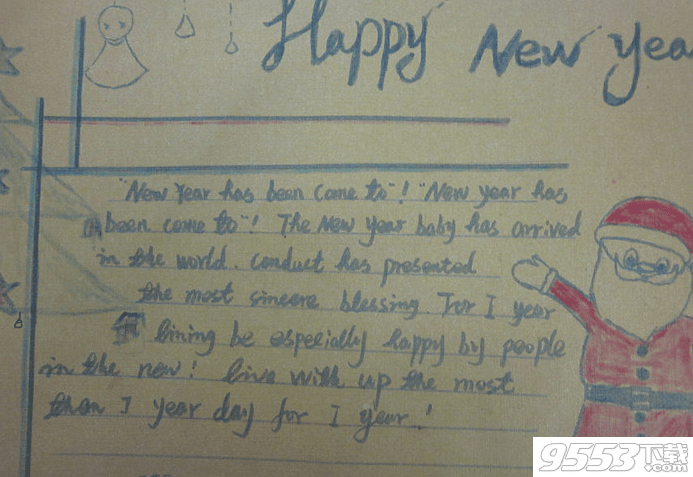 Happy New Year
"New Year has been come to"! "New year has
been come to"! The New year baby has arrived
in the world. Conduct has presented
the most sincere blessing. For I year
lining be especially happy by people
in the new! live with up the most
than I year day for I year!
9553下载
.com